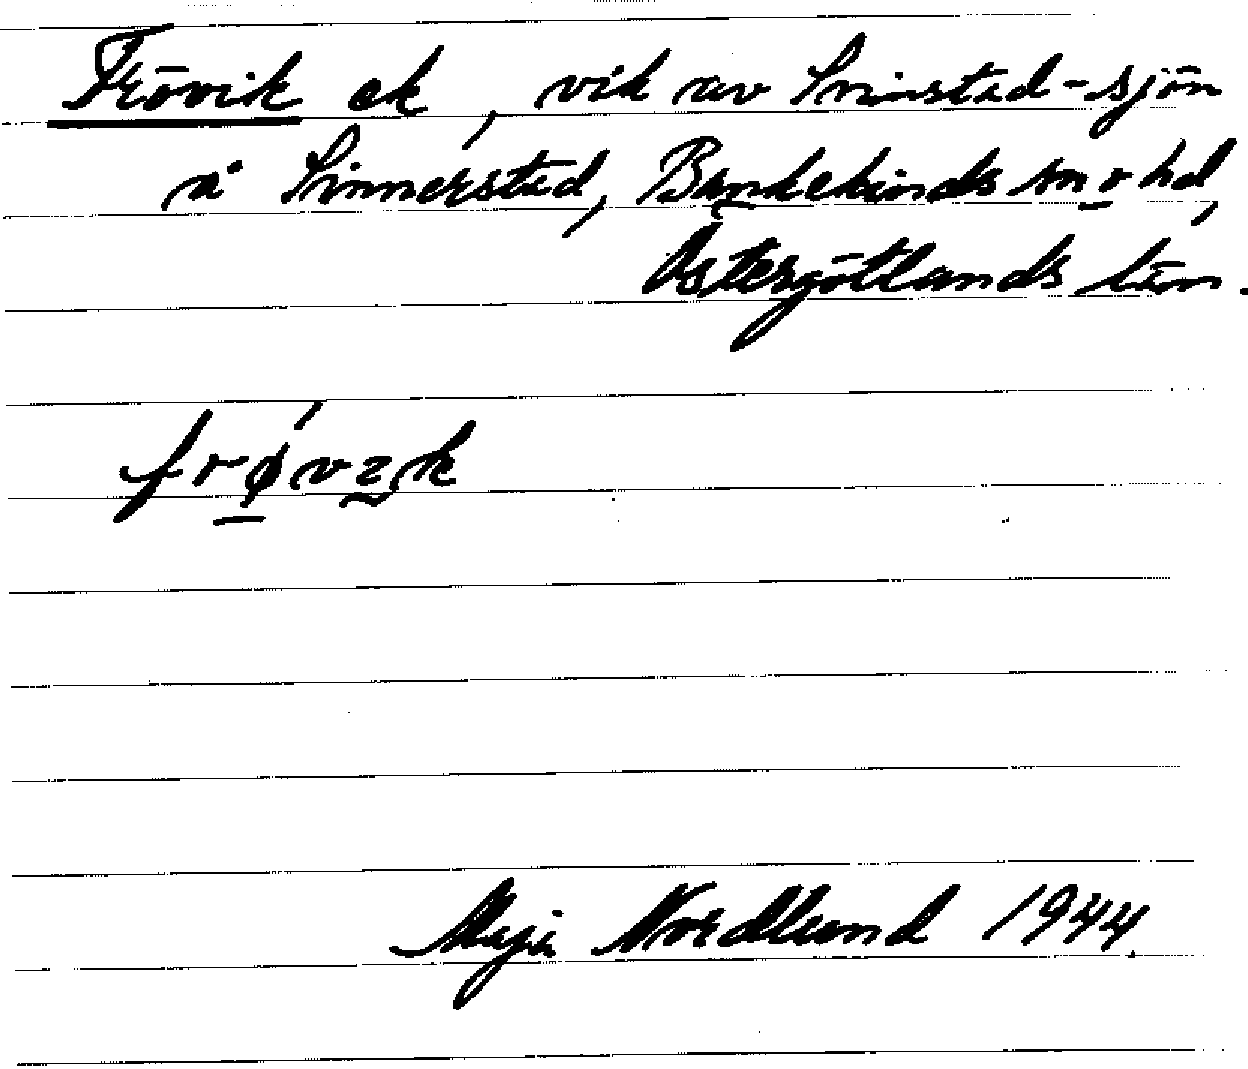 Frövik ek, vik av Svinstad-sjön
å Sinnerstad, Bankekinds sn o hd,
Östergötlands län.
frøvik
Maja Nordlund 1944.